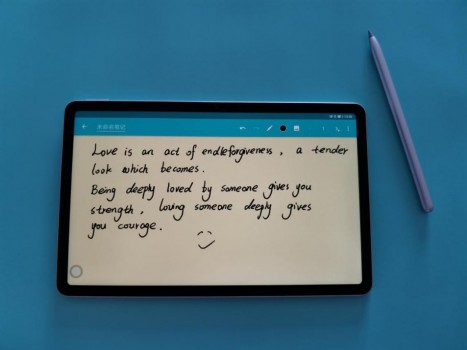 Love is an act of endleforgiveness, a tender
look which becomes.
Being deeply loved by someone gives you
strength, loving someone deeply gives
you courage.